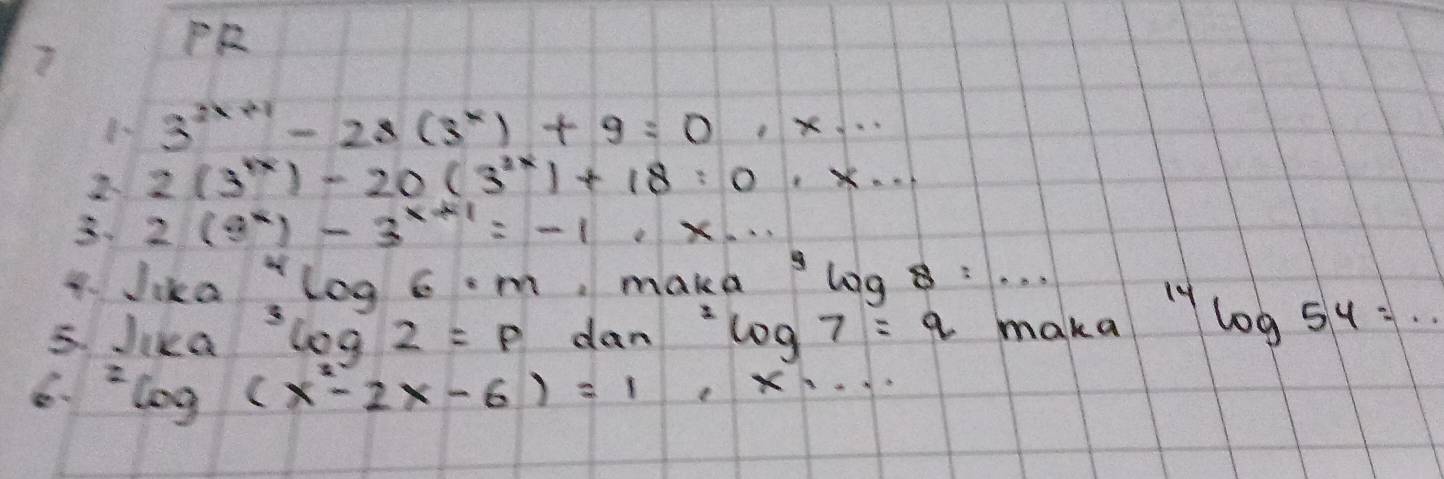 PR
7
1. 3²ˣ⁺¹ - 28 (3ˣ) + 9 = 0 , x ...
2. 2 (3⁴ˣ) - 20 (3²ˣ) + 18 = 0 , x ...
3. 2 (9ˣ) - 3ˣ⁺¹ = -1 , x ...
4. Jika ⁴log 6 = m , maka ⁹log 8 = ...
5. Jika ³log 2 = p dan ²log 7 = q maka ¹⁴log 54 = ..
6. ²log (x² - 2x - 6) = 1 , x ....